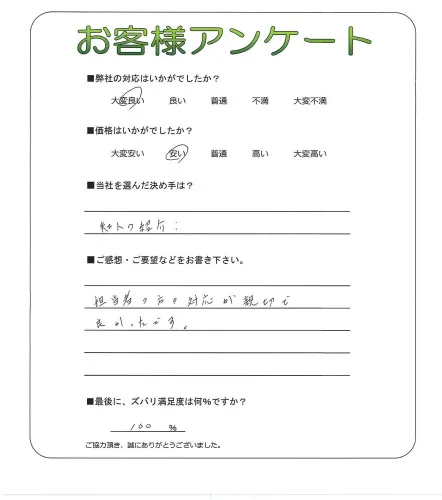 お客様アンケート
■弊社の対応はいかがでしたか?
大変良い 良い 普通 不満 大変不満
■価格はいかがでしたか?
大変安い 安い 普通 高い 大変高い
■当社を選んだ決め手は?
知人の紹介;
■ご感想・ご要望などをお書き下さい。
担当者の方の対応が親切で
良かったです。
■最後に、ズバリ満足度は何%ですか?
100 %
ご協力頂き、誠にありがとうございました。